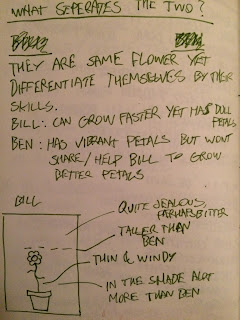 WHAT SEPERATES THE TWO?
THEY ARE SAME FLOWER YET
DIFFERENTIATE THEMSELVES BY THEIR
SKILLS.
BILL: CAN GROW FASTER YET HAS DULL
PETALS
BEN: HAS VIBRANT PETALS BUT WONT
SHARE/HELP BILL TO GROW
BETTER PETALS
BILL
QUITE JEALOUS,
PERHAPS BITTER
TALLER THAN
BEN
THIN & WINDY
IN THE SHADE ALOT
MORE THAN BEN